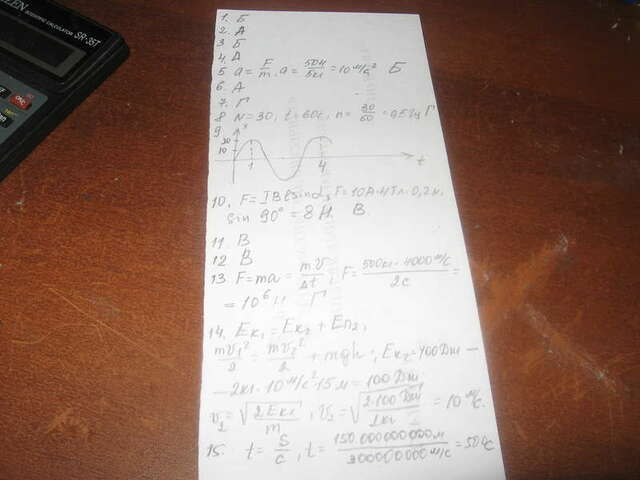 SR-35T
1. Б
2. А
3 Б
4. А
5 a = F/m, a = 50н/5кг = 10 м/с² Б
6. А
7. Г
8 N = 30, t = 60с, n = 30/60 = 0,5 Гц Г
9 x
20
10
1 4 t
10, F = IBlsinα, F = 10А·4Тл·0,2м·
sin 90° = 8 Н. В
11. В
12 В
13. F = ma = mv/Δt F = 500кг·4000м/с/2с =
= 10⁶ н Г
14. Eк₁ = Eк₂ + Eп₂,
mv₁²/2 = mv₂²/2 + mgh; Eк₂ = 400Дж —
— 2кг·10м/с²·15м = 100 Дж
v₂ = √2Eк₂/m, v₂ = √2·100Дж/2кг = 10 м/с.
15. t = S/c, t = 150.000000000м/300000000м/с = 500с